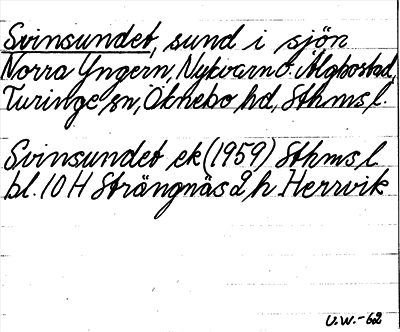 Svinsundet, sund i sjön
Norra Yngern, Nykvarn o. Algbostad,
Turinge sn, Öknebo hd, Sthms l.
Svinsundet ek (1959) Sthms l
bl. 10 H Strängnäs 2 h Herrvik
U.W.-62